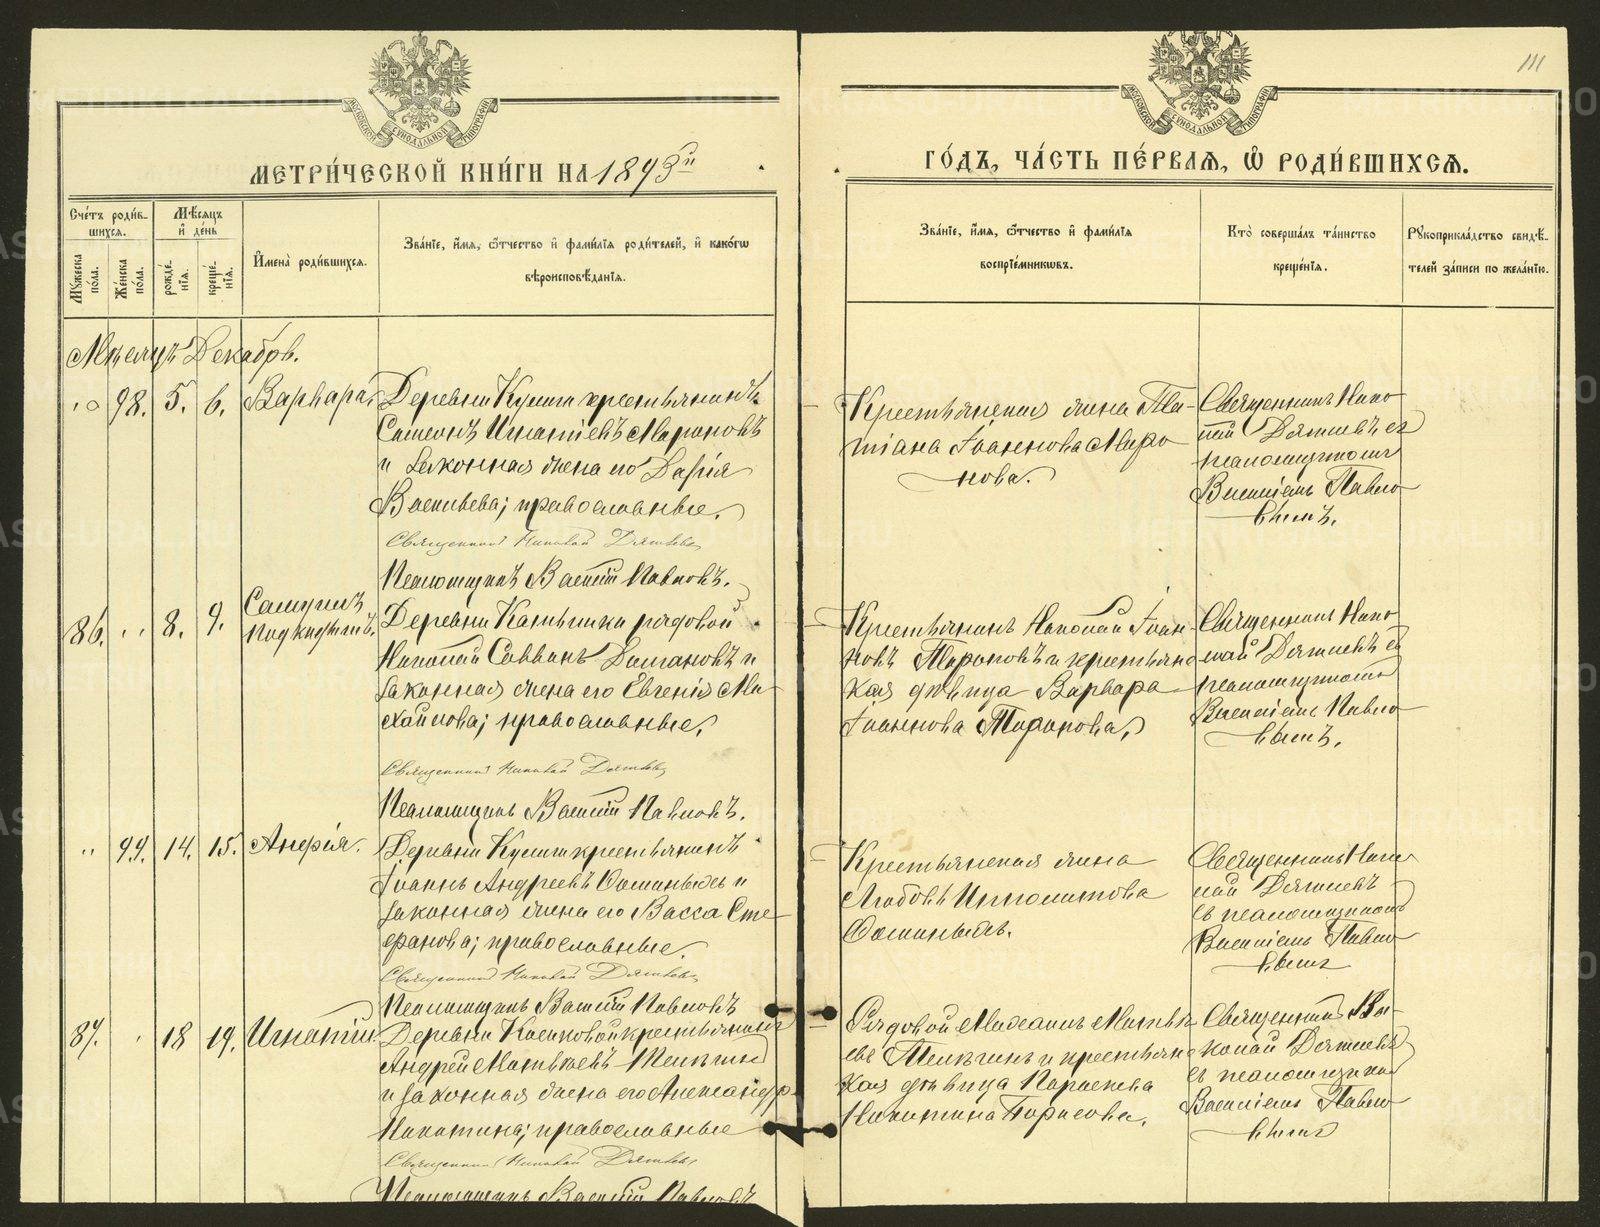 111
МОСКОВСКОЙ СѴНОДАЛЬНОЙ ТИПОГРАФІИ
МОСКОВСКОЙ СѴНОДАЛЬНОЙ ТИПОГРАФІИ
МЕТРИ́ЧЕСКОЙ КНИ́ГИ НА 1893й
ГО́ДЪ, ЧА́СТЬ ПЕ́РВАЯ, Ѡ РОДИ́ВШИХСЯ.
Сче́тъ роди́в-
шихся.
Мꙋ́жеска по́ла.
Же́нска по́ла.
Мѣ́сяцъ и де́нь
рожде́нїя.
креще́нїя.
Имена̀ роди́вшихся.
Зва́нїе, и́мя, ѻ́тчество и фами́лїя роди́телей, и како́гѡ
вѣроисповѣ́данїя.
Зва́нїе, и́мя, ѻ́тчество и фами́лїя
воспрїе́мникѡвъ.
Кто̀ соверша́лъ та́инство
креще́нїя.
Рꙋкоприкла́дство свидѣ́-
телей за́писи по жела́нїю.
Мѣсяцъ Декабрь.
98. 5. 6. Варвара.
Деревни крестьянинъ
Симеонъ Игнатіевъ Мироновъ
и законная жена его Дарія
Васильева; православные.
Священникъ Николай
Псаломщикъ Василій Павловъ.
Крестьянская жена Та-
тіана Іоаннова Миро
нова.
Священникъ Нико
лай съ
псаломщикомъ
Василіемъ Павло
вымъ.
86. 8. 9. Самуилъ
подкидышъ.
Деревни рядовой
Николай Саввинъ и
законная жена его Евгенія Ми
хайлова; православные.
Священникъ Николай
Псаломщикъ Василій Павловъ.
Крестьянинъ Николай Іоан
новъ и крестьянс
кая дѣвица Варвара
Іоаннова
Священникъ Нико
лай съ
псаломщикомъ
Василіемъ Павло
вымъ.
99. 14. 15. Анфія.
Деревни крестьянинъ
Іоаннъ Андреевъ и
законная жена его Васса Сте
фанова; православные.
Священникъ Николай
Псаломщикъ Василій Павловъ
Крестьянская жена
Любовь Ипполитова
Священникъ Нико
лай
съ псаломщикомъ
Василіемъ Павло
вымъ
87. 18 19. Игнатій.
Деревни крестьянинъ
Андрей Матвѣевъ Телѣгинъ
и законная жена его Александра
Никитина; православные
Священникъ Николай
Псаломщикъ Василій Павловъ
Рядовой Михаилъ Матвѣ
евъ Телѣгинъ и крестьянс
кая дѣвица Параскева
Никитина Борисова.
Священникъ Ни-
колай
съ псаломщикомъ
Василіемъ Павло
вымъ